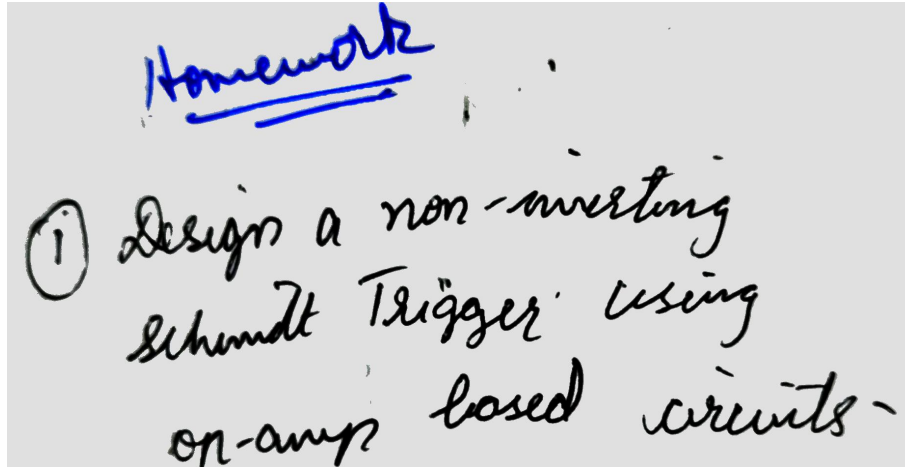 Homework
① Design a non-inverting
Schmidt Trigger using
op-amp based circuits-